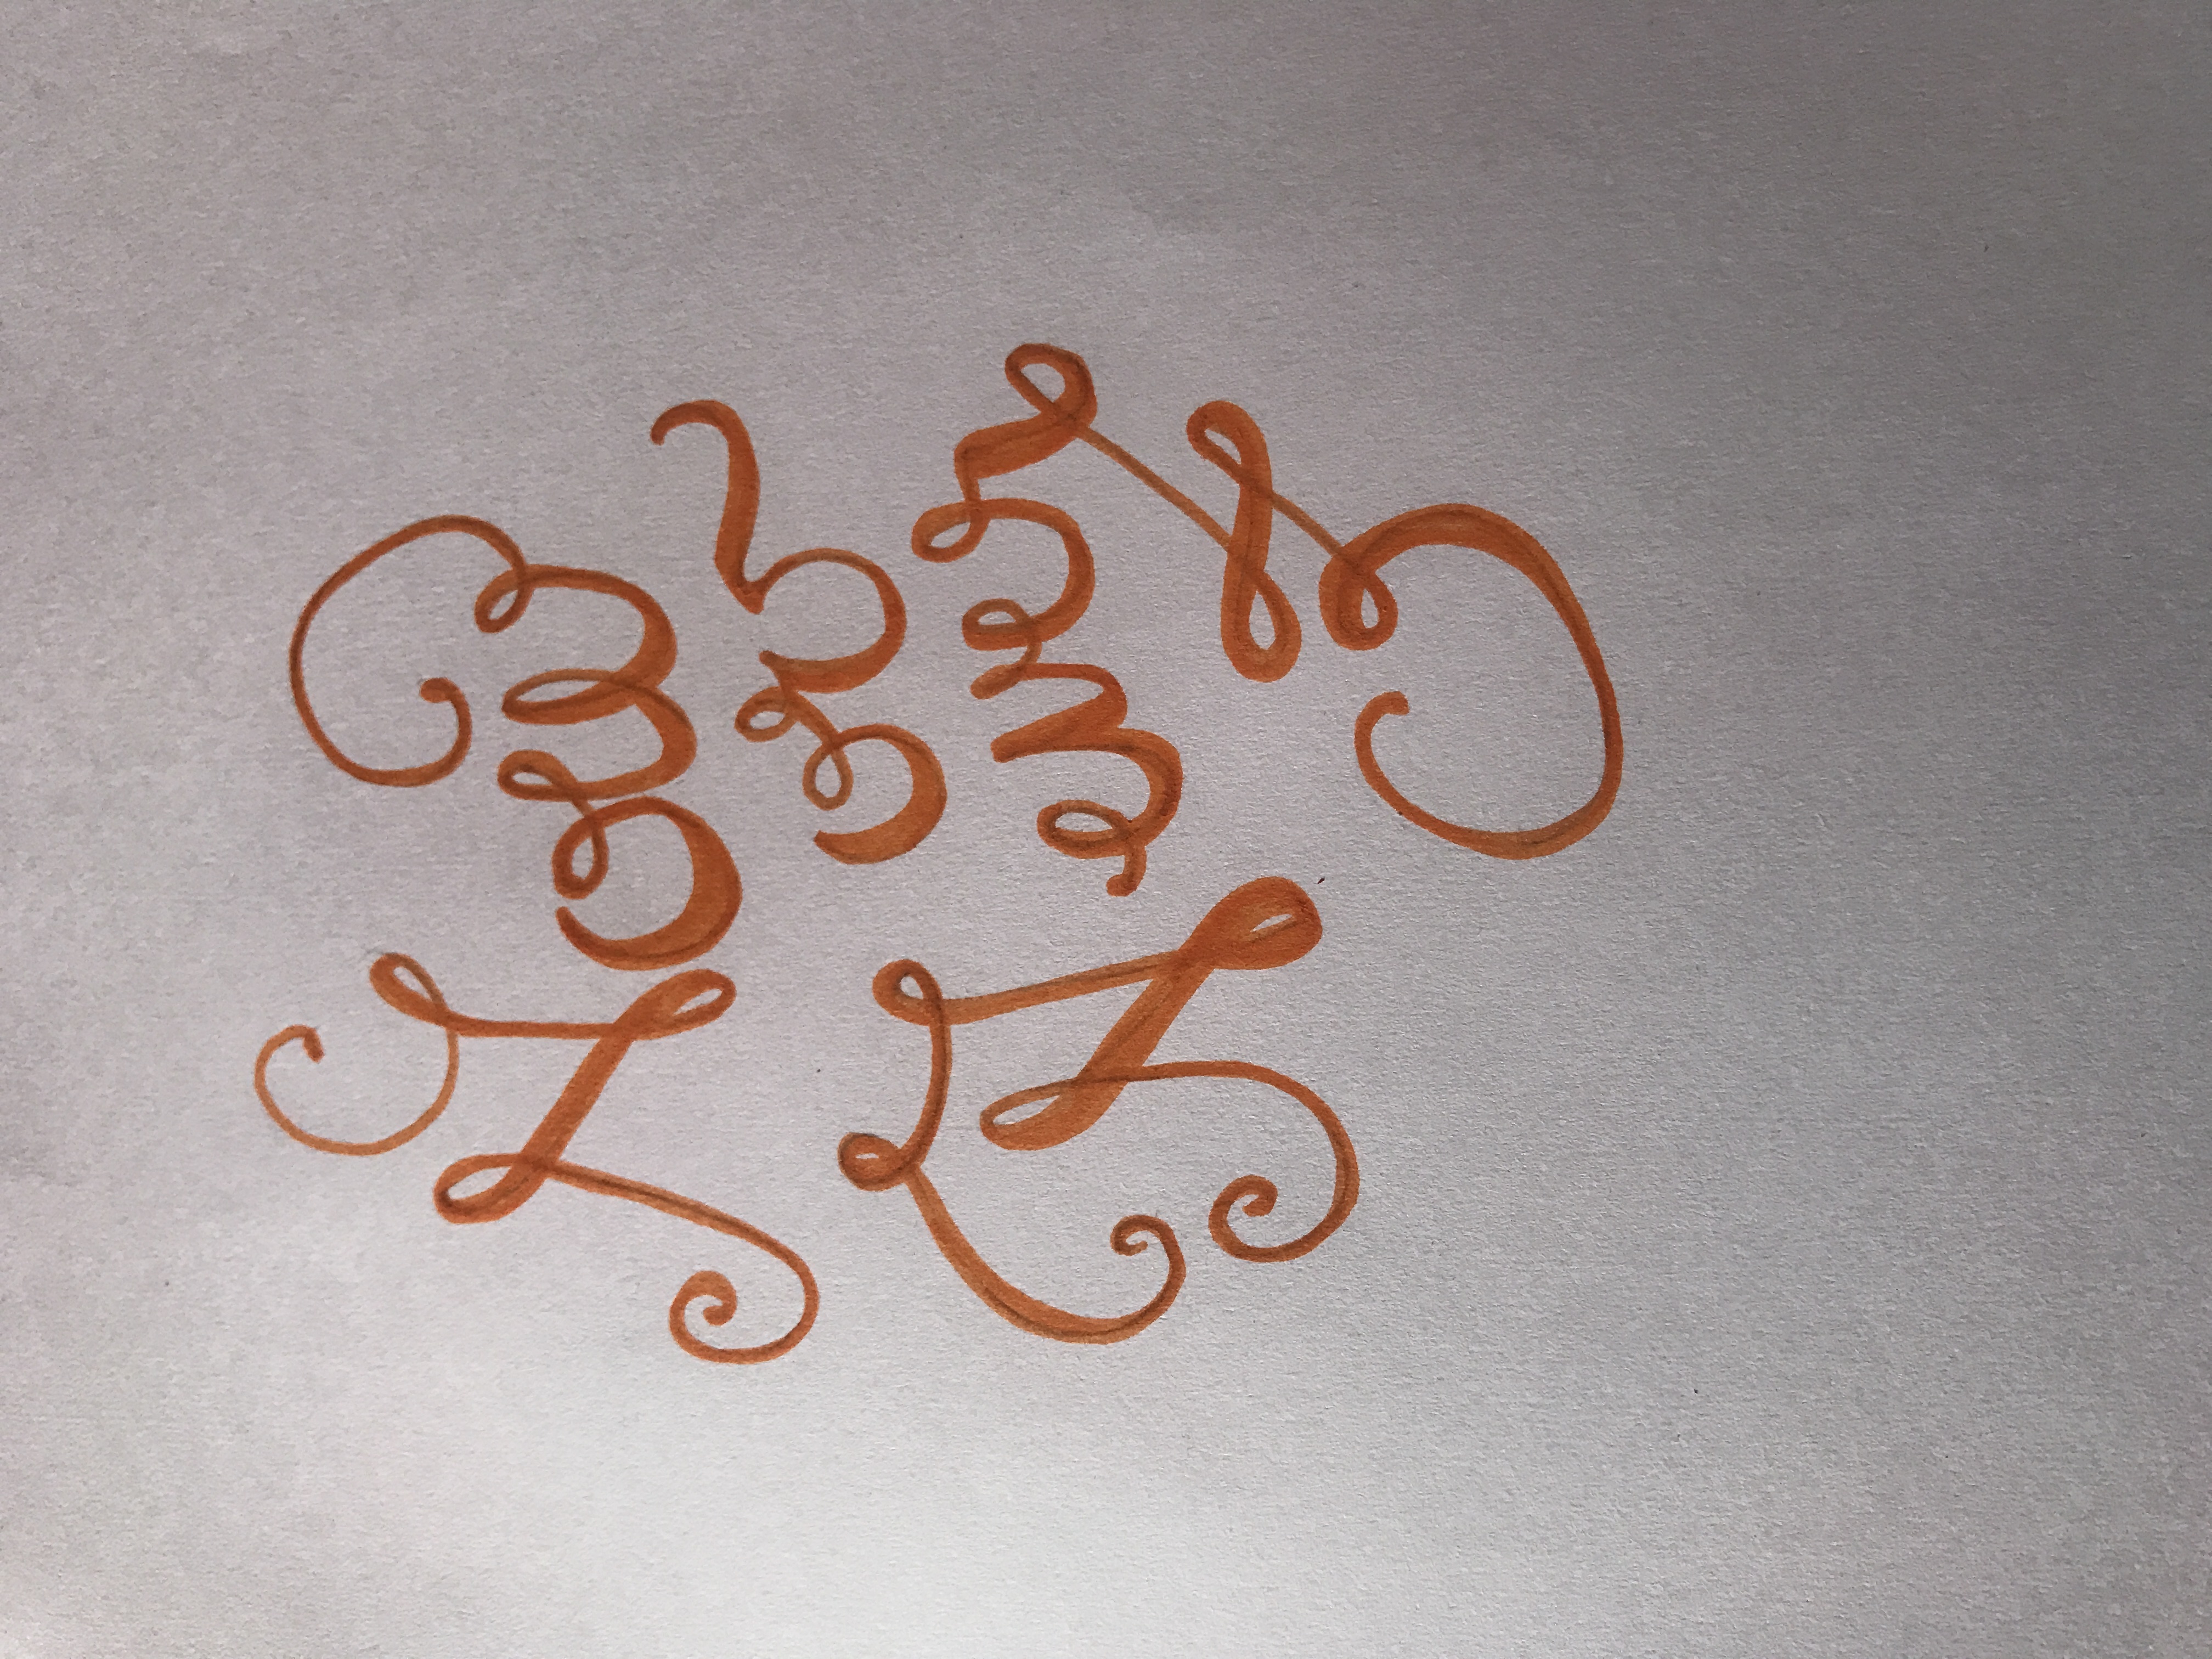 Now
or
Never